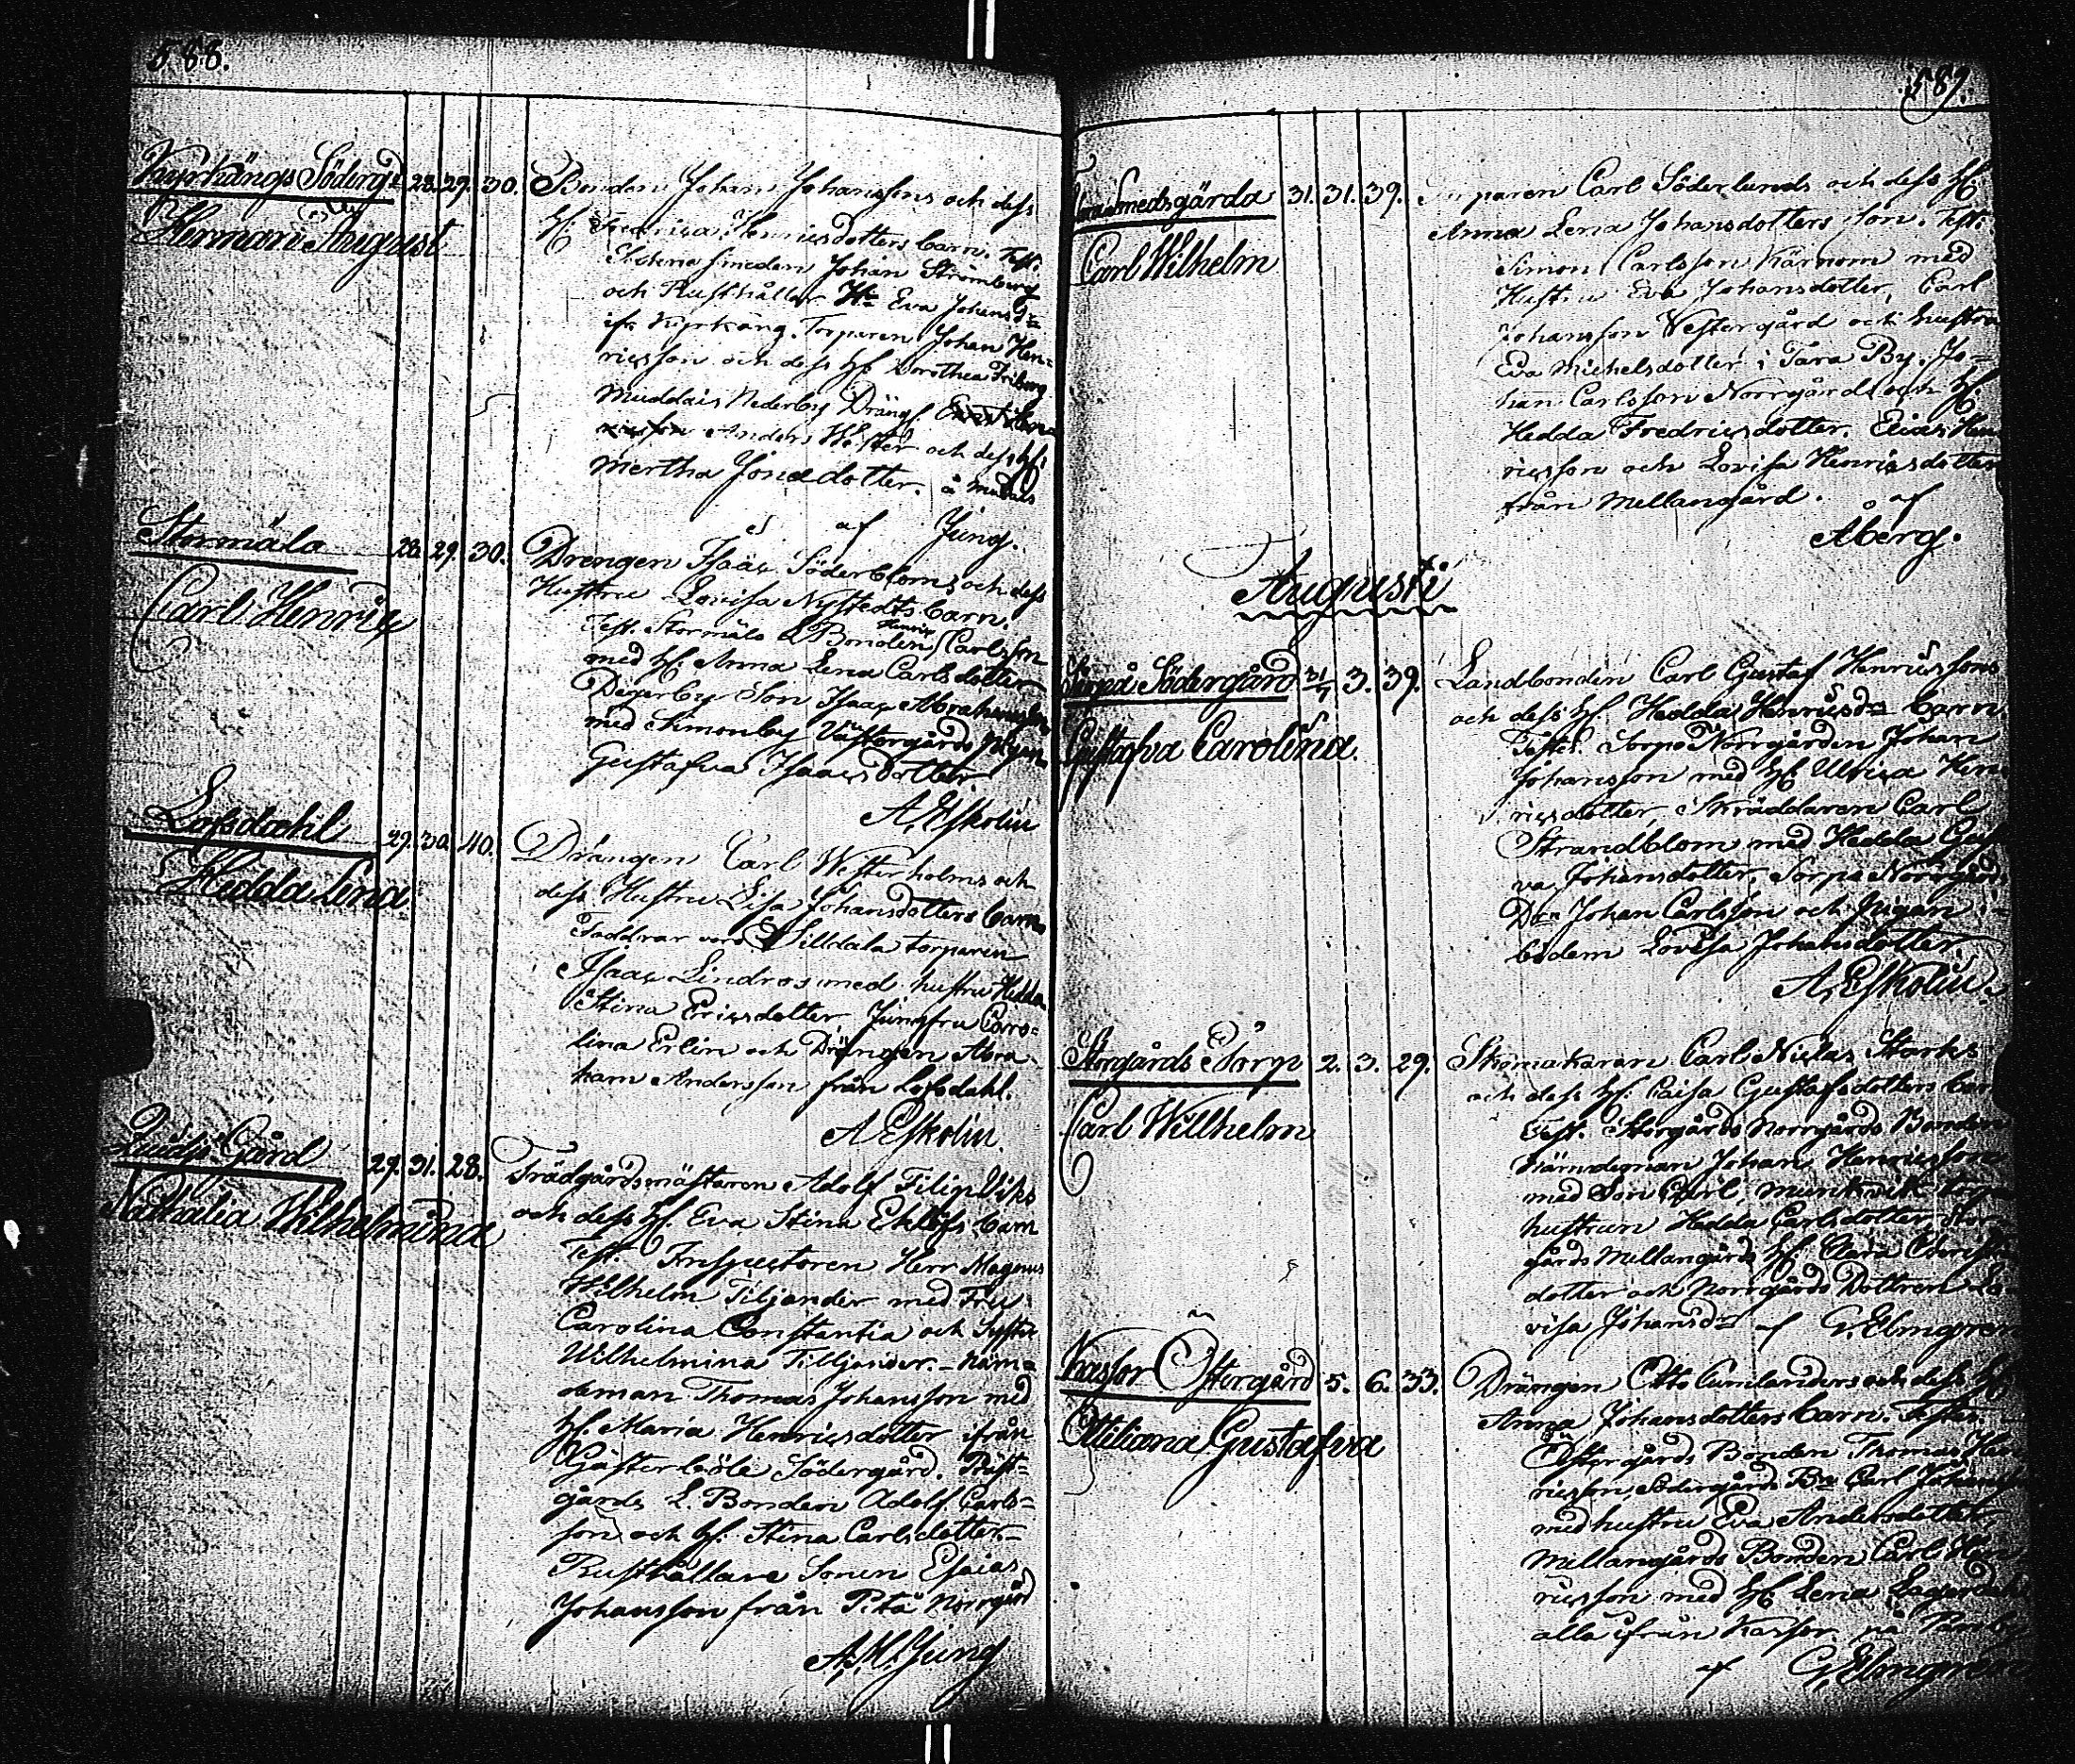 588.
Kyrkängs Södergd 28. 29. 30. Bonden Johan Johanssons och dess
Herman August
h: Fredrica Henricsdotters barn. Test.
smeden Johan Strömberg
och Rusthåller Eva Johansd:r
ifr. Kyrkäng. Torparen Johan Hen=
ricsson och dess h: Dorothea Friberg
Muddais Nederby Dräng
Anders Wester och dess h:
Mertha Jonædotter. å Muddais
af Jung.
Stormäla 28. 29. 30. Drengen Isaac Söderbloms och dess
Carl Henric
Hustru Lovisa Nystedts barn.
Test. Stormäla Bonden Henric Carlsson
med h: Anna Lena Carlsdotter
Degerby Son Isaac Abrahamsson
med Simonby Västergårds Pigan
Gustafva Isaacsdotter.
A. Eskolin
Lofsdahl 29. 30. 40. Drängen Carl Westerholms och
Hedda Lena
dess Hustru Lisa Johansdotters barn
Faddrar voro Silldala torparen
Isaac Lindros med hustru Hedda
Stina Ericsdotter, Jungfru Caro=
lina Erlin och Drängen Abra=
ham Andersson från Lofsdahl.
A Eskolin
Qvidja Gård 29. 31. 28. Trädgårdsmästaren Adolf Filip Viks
Nathalia Wilhelmina
och dess h: Eva Stina Eklöfs barn
Test. Inspectoren Herr Magnus
Wilhelm Tiljander med Fru
Carolina Constantia och Syster
Wilhelmina Tilljander. - Näm=
deman Thomas Johansson med
h: Maria Henricsdotter ifrån
Gästerböle Södergård. Präst=
gårds L. Bonden Adolf Carls=
son och h: Stina Carlsdotter -
Rusthållare Sonen Esaias
Johansson från Pitå Norrgård
A. W. Jung
589.
Smedsgårda 31. 31. 39. Torparen Carl Söderlunds och dess h:
Carl Wilhelm
Anna Lena Johansdotters son. Test.
Simon Carlsson Kärnom med
Hustru Eva Johansdotter, Carl
Johansson Westergård och hustru
Eva Michelsdotter i Tara By. Jo=
han Carlsson Norrgård och h:
Hedda Fredricsdotter. Elias Hen
ricsson och Lovisa Henricsdotter
från Mellangård. af
Åberg.
Augusti
Sorpo Södergård 31/7 3. 39. Landbonden Carl Gustaf Henricssons
Gustafva Carolina.
och dess h: Hedda Henricsd:rs barn
Testes. Sorpo Norrgården Johan
Johansson med h: Ulrica Hen
ricsdotter, Skräddaren Carl
Strandblom med Hedda Gusta
va Johansdotter, Sorpo Norrgårds
D:n Johan Carlsson och Pigan i
bidem Lovisa Johansdotter
A. Eskolin.
Storgårds Torp 2. 3. 29. Skomakaren Carl Niclas Starks
Carl Willhelm
och dess h: Caisa Gustafsdotters barn
Test. Storgårds Norrgårds Bonden
Nämndeman Johan Henricsson
med Son Carl, Munkvik torpar
hustrun Hedda Carlsdotter, Stor=
gårds Mellangårds h: Clara Christi
dotter och Norrgårds Dottren Lo=
visa Johansd:r af G. Elmgren
Kassor Östergård 5. 6. 33. Drängen Otto Cumlanders och dess h:
Ottiliana Gustafva
Anna Johansdotters barn. Testes.
Östergårds Bonden Thomas Hen
ricsson, Södergårds B:n Carl Johansson
med hustru Eva Andersdotter
Mellangårds Bonden Carl Hen
ricsson med h: Lena
alla ifrån Kassor på
af G. Elmgren